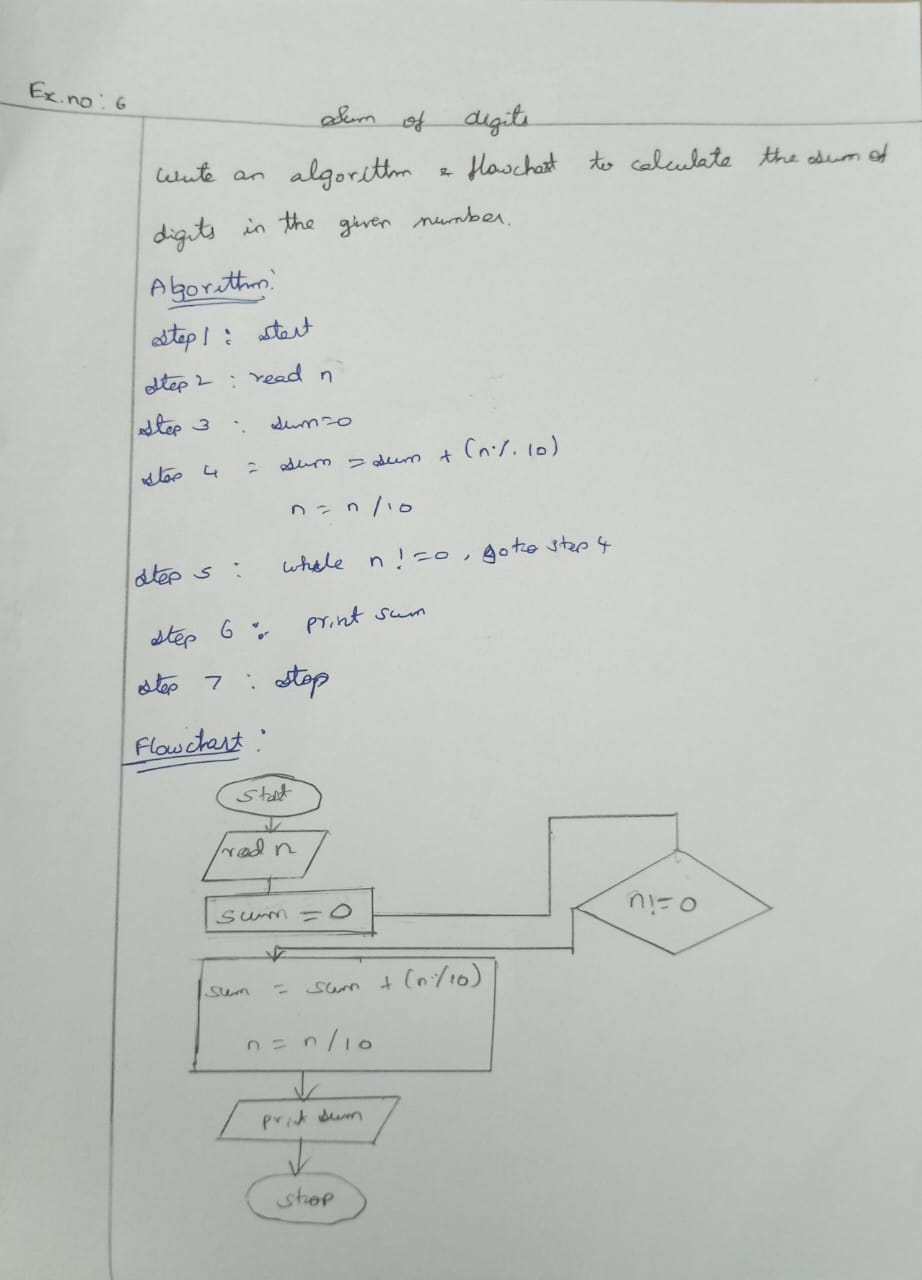 Ex.no: 6
Sum of digits
Write an algorithm & flowchart to calculate the sum of
digits in the given number.
Algorithm:
step 1 : start
step 2 : read n
step 3 : sum=0
step 4 = sum = sum + (n%10)
n = n/10
step 5 : while n!=0, goto step 4
step 6 : print sum
step 7 : stop
Flowchart :
start
read n
sum = 0
n!=0
sum = sum + (n%10)
n = n/10
print sum
stop